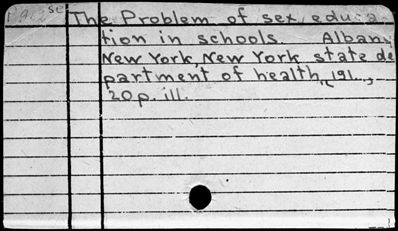 The Problem of sex educa-
tion in schools. Albany
New York, New York state de
partment of health, 191..,
20p. ill.